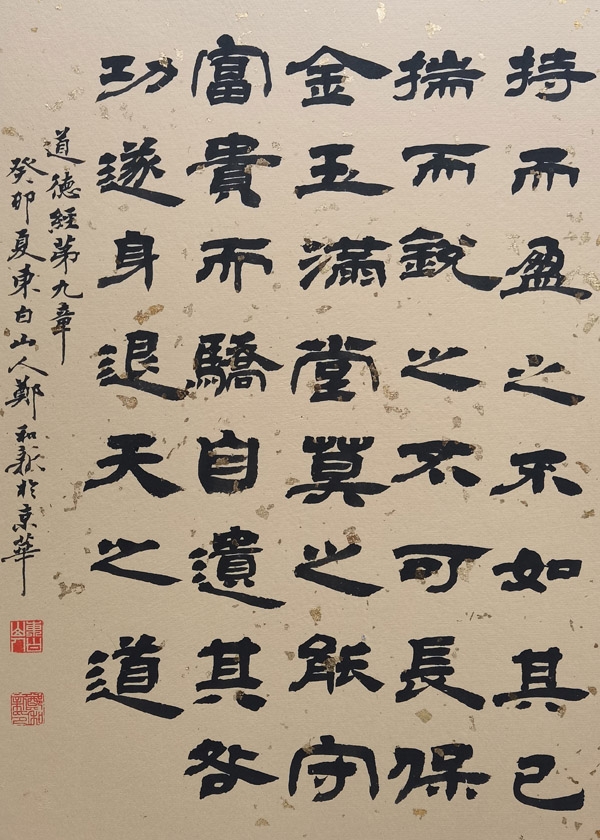 持而盈之不如其已
揣而銳之不可長保
金玉滿堂莫之能守
富貴而驕自遺其咎
功遂身退天之道
道德經第九章
癸卯夏東白山人鄭和新於京華